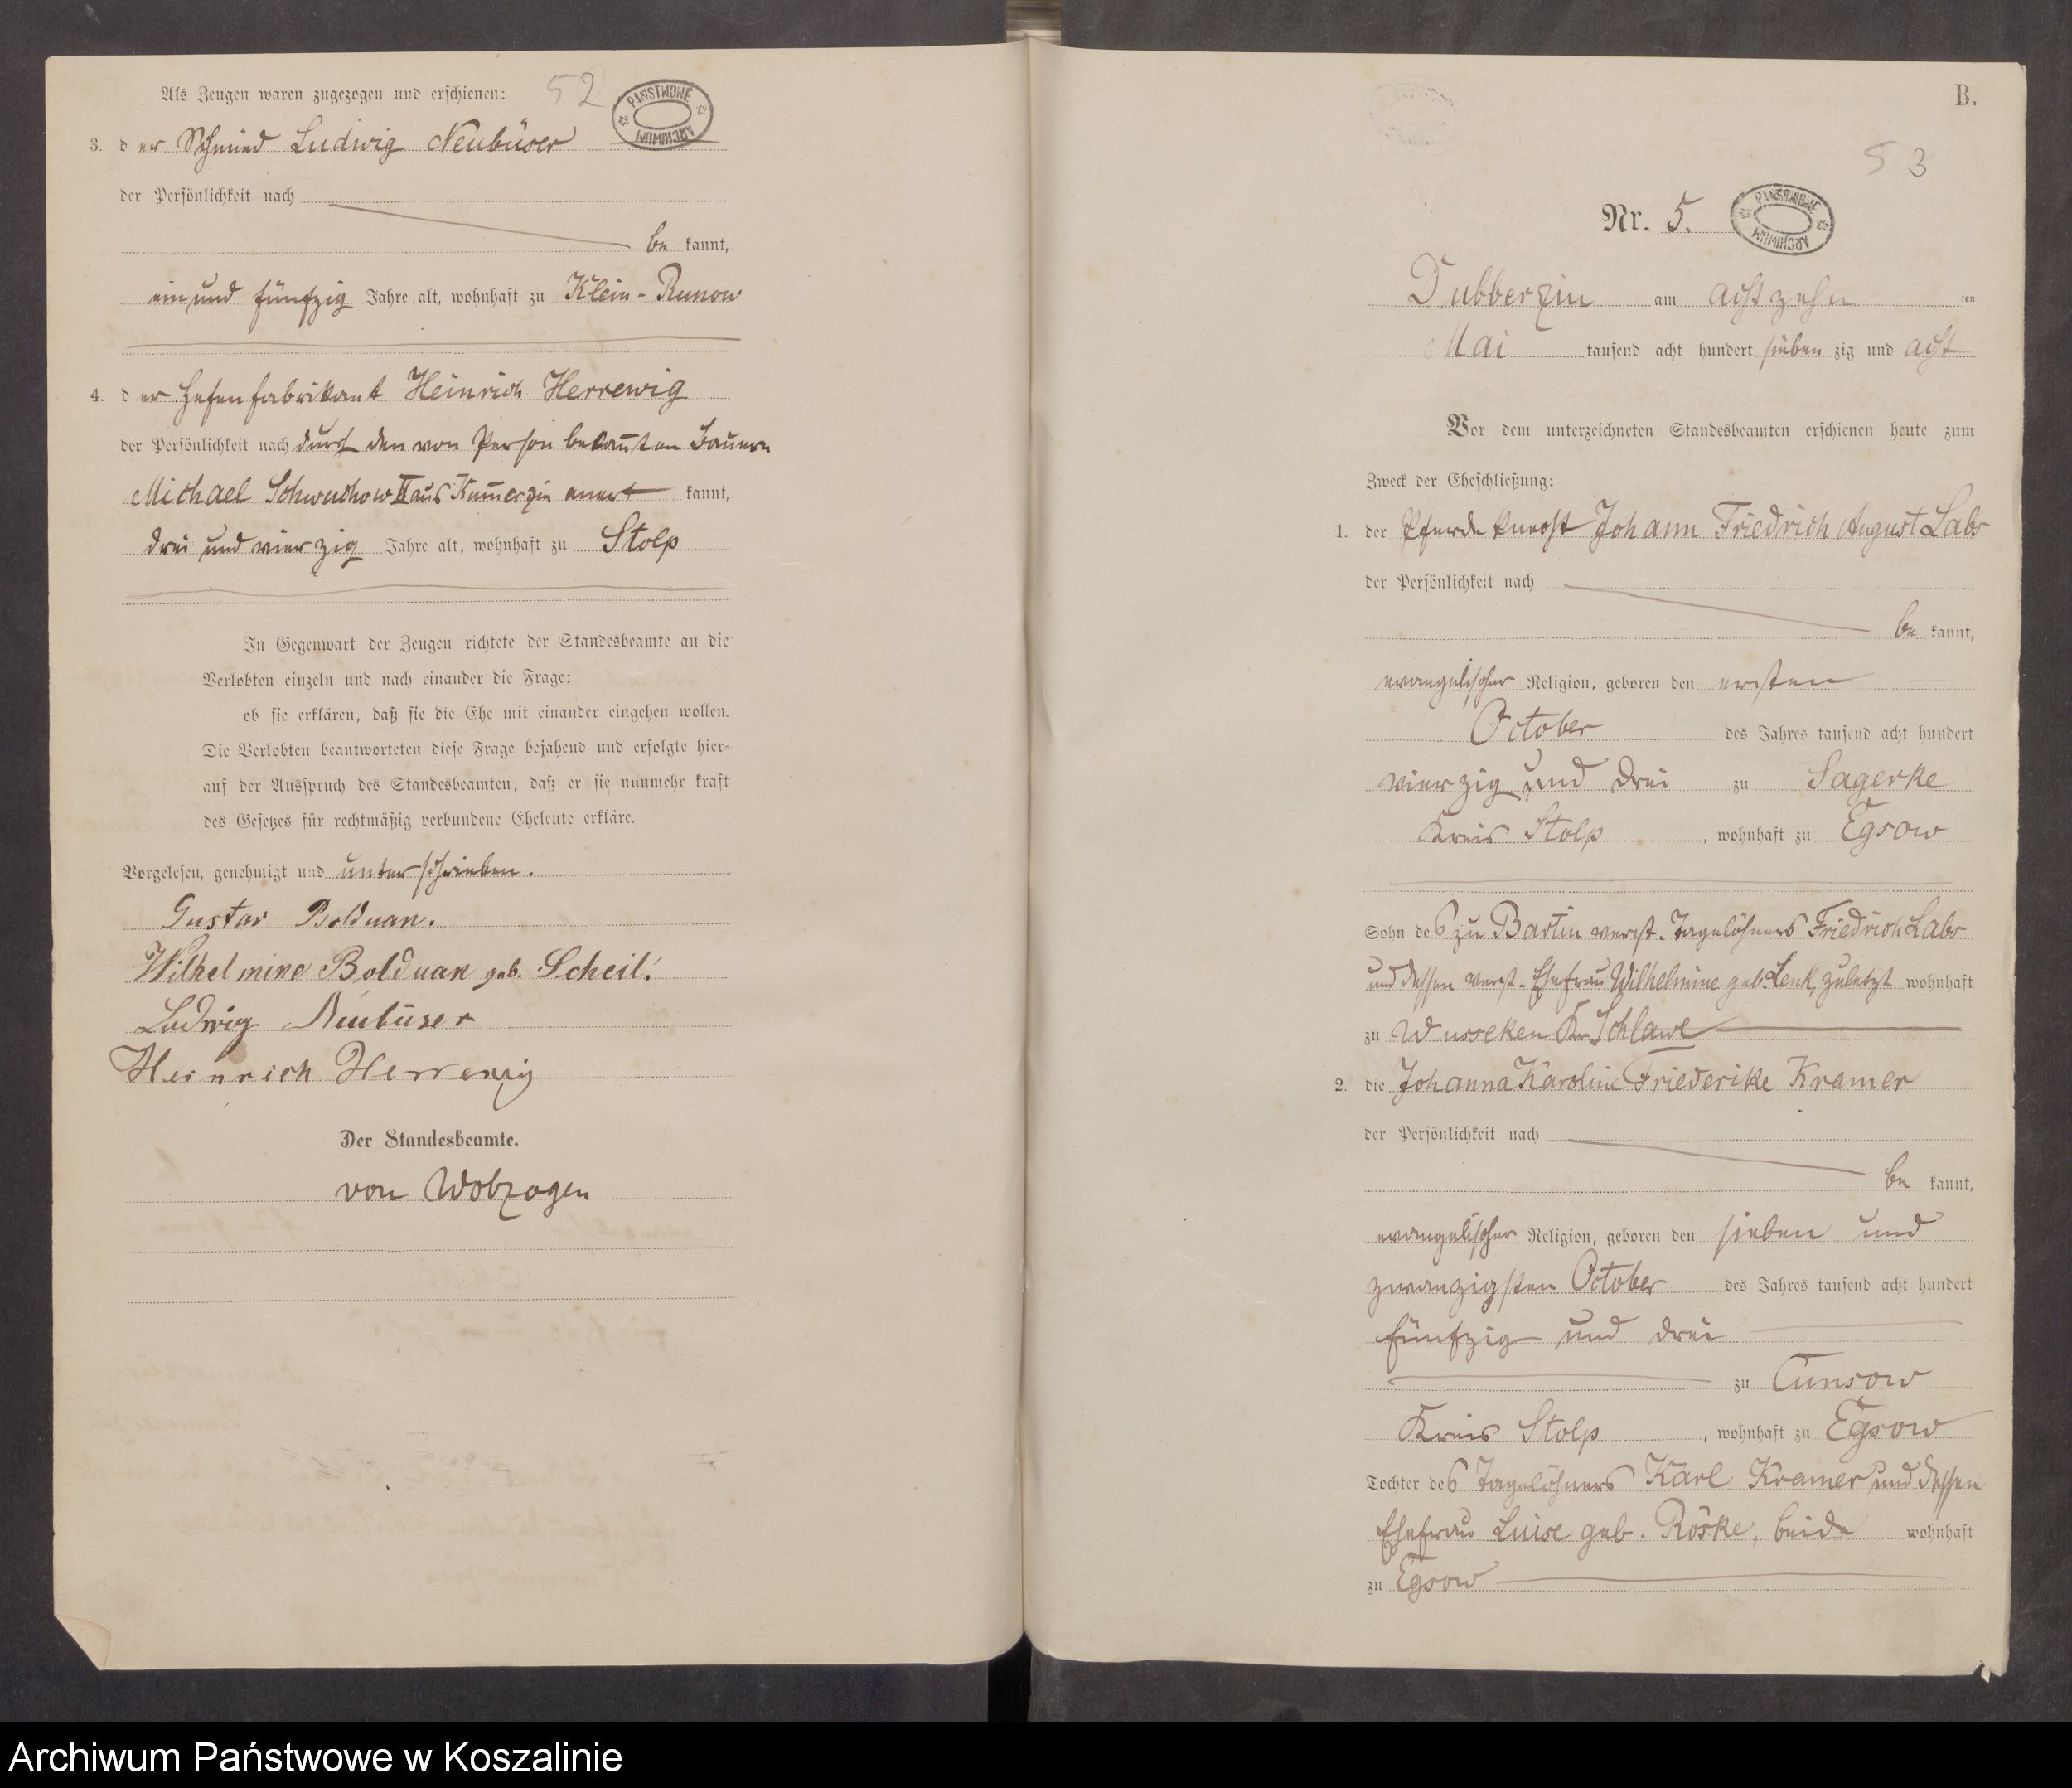 Als Zeugen waren zugezogen und erschienen:
52
PAŃSTWOWE ARCHIWUM
3. der Schmied Ludwig Neubüser
der Persönlichkeit nach
be kannt,
ein und fünfzig Jahre alt, wohnhaft zu Klein-Runow
4. der Hefenfabrikant Heinrich Herrewig
der Persönlichkeit nach durch den von Person bekannten Bauern
Michael Schwuchow II aus Kummerzin aner kannt,
drei und vierzig Jahre alt, wohnhaft zu Stolp
In Gegenwart der Zeugen richtete der Standesbeamte an die
Verlobten einzeln und nach einander die Frage:
ob sie erklären, daß sie die Ehe mit einander eingehen wollen.
Die Verlobten beantworteten diese Frage bejahend und erfolgte hier-
auf der Ausspruch des Standesbeamten, daß er sie nunmehr kraft
des Gesetzes für rechtmäßig verbundene Eheleute erkläre.
Vorgelesen, genehmigt und unterschrieben.
Gustav Bolduan.
Wilhelmine Bolduan geb. Scheil.
Ludwig Neubüser
Heinrich Herrewig
Der Standesbeamte.
von Wobzogen
B.
53
Nr. 5.
PAŃSTWOWE ARCHIWUM
Dubberzin am achtzehn ten
Mai tausend acht hundert sieben zig und acht
Vor dem unterzeichneten Standesbeamten erschienen heute zum
Zweck der Eheschließung:
1. der Pferdeknecht Johann Friedrich August Labs
der Persönlichkeit nach
be kannt,
evangelischer Religion, geboren den ersten
October des Jahres tausend acht hundert
vierzig und drei zu Sagerke
Kreis Stolp, wohnhaft zu Egsow
Sohn des zu Bartin verst. Tagelöhners Friedrich Labs
und dessen verst. Ehefrau Wilhelmine geb. Lenk, zuletzt wohnhaft
zu Wusseken Kr. Schlawe
2. die Johanna Karoline Friederike Kramer
der Persönlichkeit nach
be kannt,
evangelischer Religion, geboren den sieben und
zwanzigsten October des Jahres tausend acht hundert
fünfzig und drei
zu Cunsow
Kreis Stolp, wohnhaft zu Egsow
Tochter des Tagelöhners Karl Kramer und dessen
Ehefrau Luise geb. Röske, beide wohnhaft
zu Egsow
Archiwum Państwowe w Koszalinie